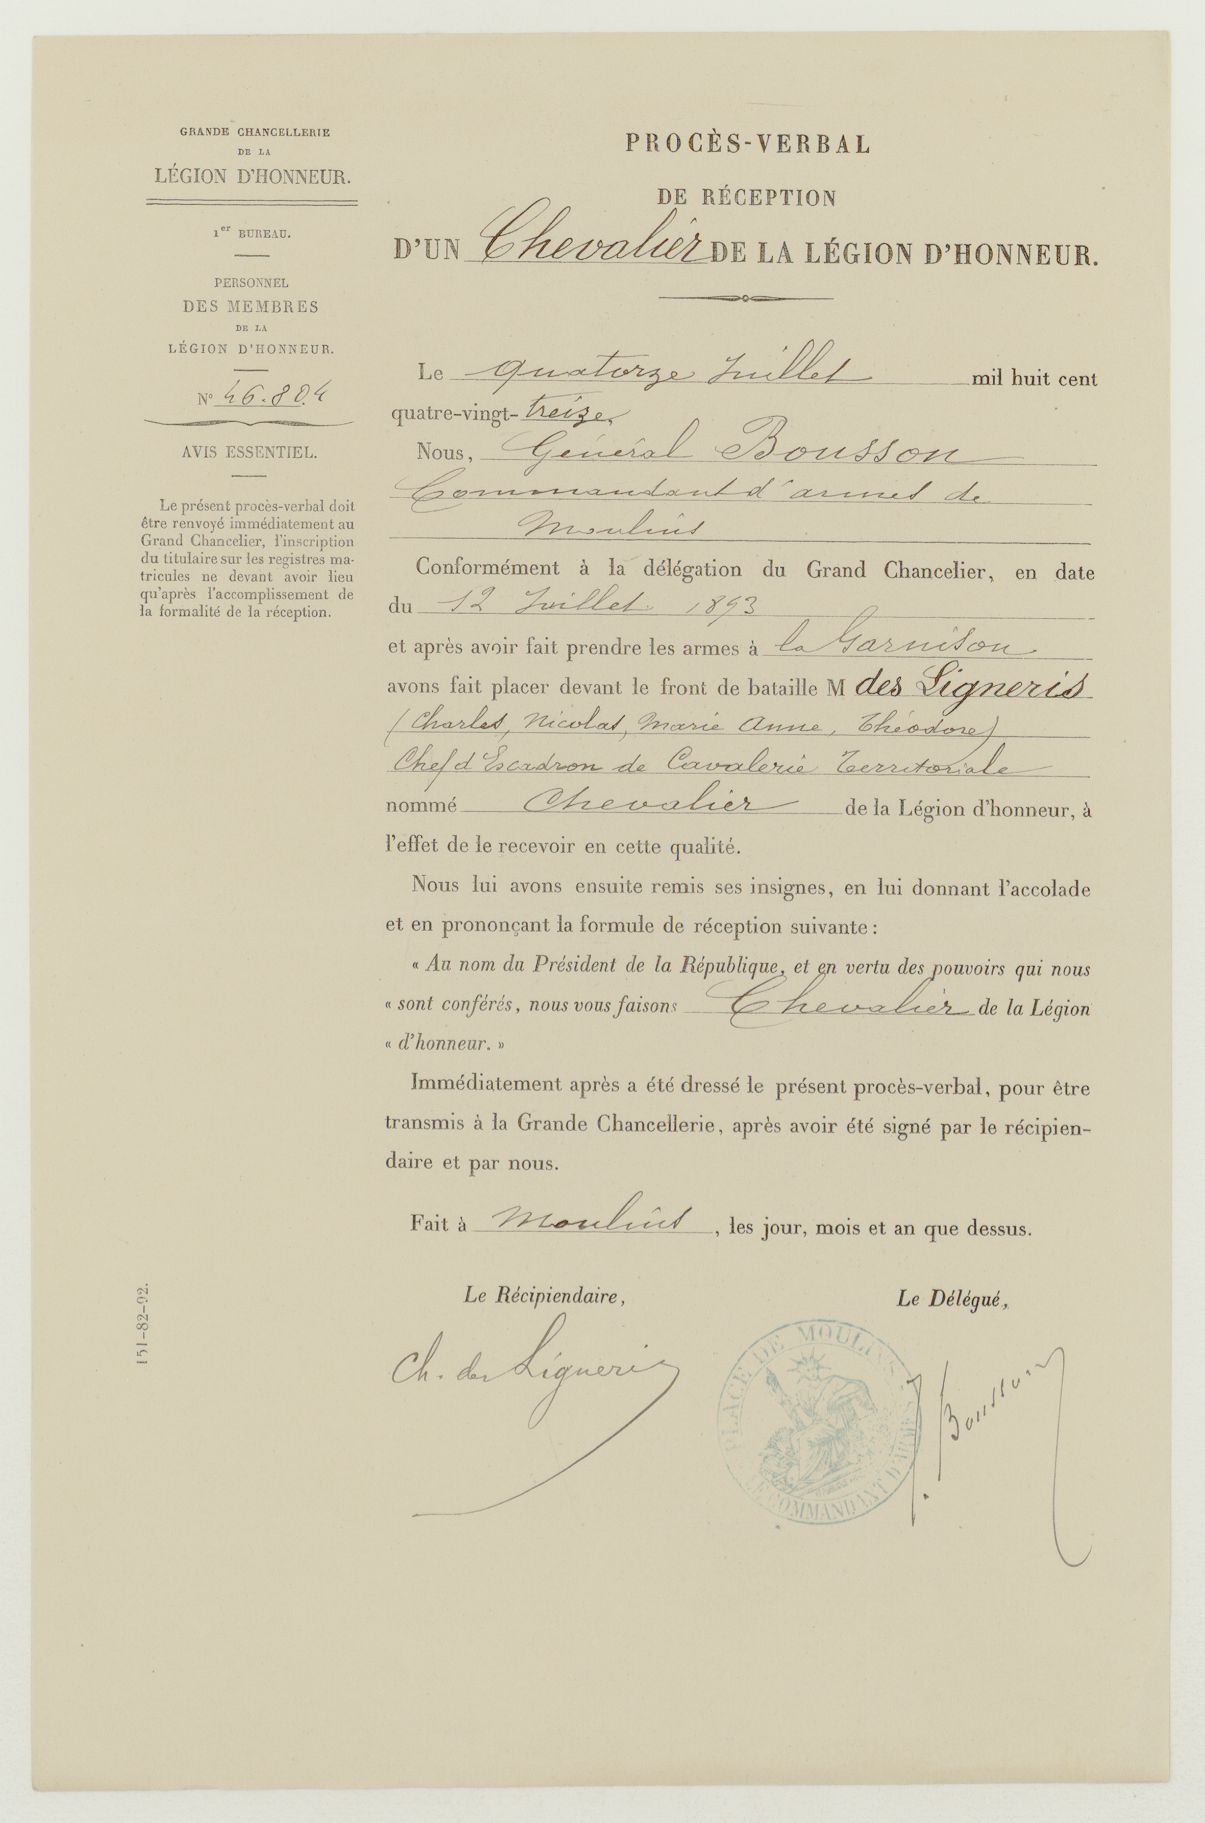 GRANDE CHANCELLERIE
DE LA
LÉGION D'HONNEUR.
1er BUREAU.
PERSONNEL
DES MEMBRES
DE LA
LÉGION D'HONNEUR.
N° 46.804
AVIS ESSENTIEL.
Le présent procès-verbal doit
être renvoyé immédiatement au
Grand Chancelier, l'inscription
du titulaire sur les registres ma-
tricules ne devant avoir lieu
qu'après l'accomplissement de
la formalité de la réception.
151-82-92.
PROCÈS-VERBAL
DE RÉCEPTION
D'UN Chevalier DE LA LÉGION D'HONNEUR.
Le quatorze Juillet mil huit cent
quatre-vingt-treize.
Nous, Général Bousson
Commandant d'armes de
Moulins
Conformément à la délégation du Grand Chancelier, en date
du 12 Juillet 1893
et après avoir fait prendre les armes à la Garnison
avons fait placer devant le front de bataille M des Ligneris
(Charles, Nicolas, Marie Anne, Théodore)
Chef d'Escadron de Cavalerie Territoriale
nommé Chevalier de la Légion d'honneur, à
l'effet de le recevoir en cette qualité.
Nous lui avons ensuite remis ses insignes, en lui donnant l'accolade
et en prononçant la formule de réception suivante :
« Au nom du Président de la République, et en vertu des pouvoirs qui nous
« sont conférés, nous vous faisons Chevalier de la Légion
« d'honneur. »
Immédiatement après a été dressé le présent procès-verbal, pour être
transmis à la Grande Chancellerie, après avoir été signé par le récipien-
daire et par nous.
Fait à Moulins, les jour, mois et an que dessus.
Le Récipiendaire,
Ch. des Ligneris
Le Délégué,
PLACE DE MOULINS
LE COMMANDANT D'ARMES
J. Bousson